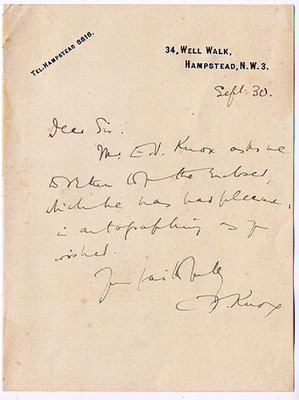 TEL. HAMPSTEAD 8816.
34, WELL WALK,
HAMPSTEAD, N.W. 3.
Sept. 30.
Dear Sir.
Mr. E. V. Knox asks me
to return to you the enclosed,
which he has had pleasure
in autographing as you
wished.
Yours faithfully
Knox